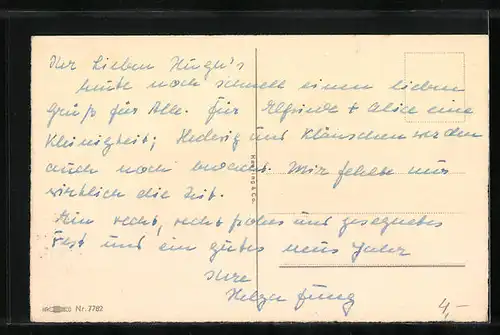 Ihr Lieben Hugu's
heute noch schnell einen lieben
Gruß für Alle. Für Elfriede + Alice eine
Kleinigkeit; Hedwig und Kläuschen werden
auch noch bedacht. Mir fehlte nur
wirklich die Zeit.
Ein recht, recht frohes und gesegnetes
Fest und ein gutes neues Jahr
Ihre
Helga Jung
4,-
Nr. 7782